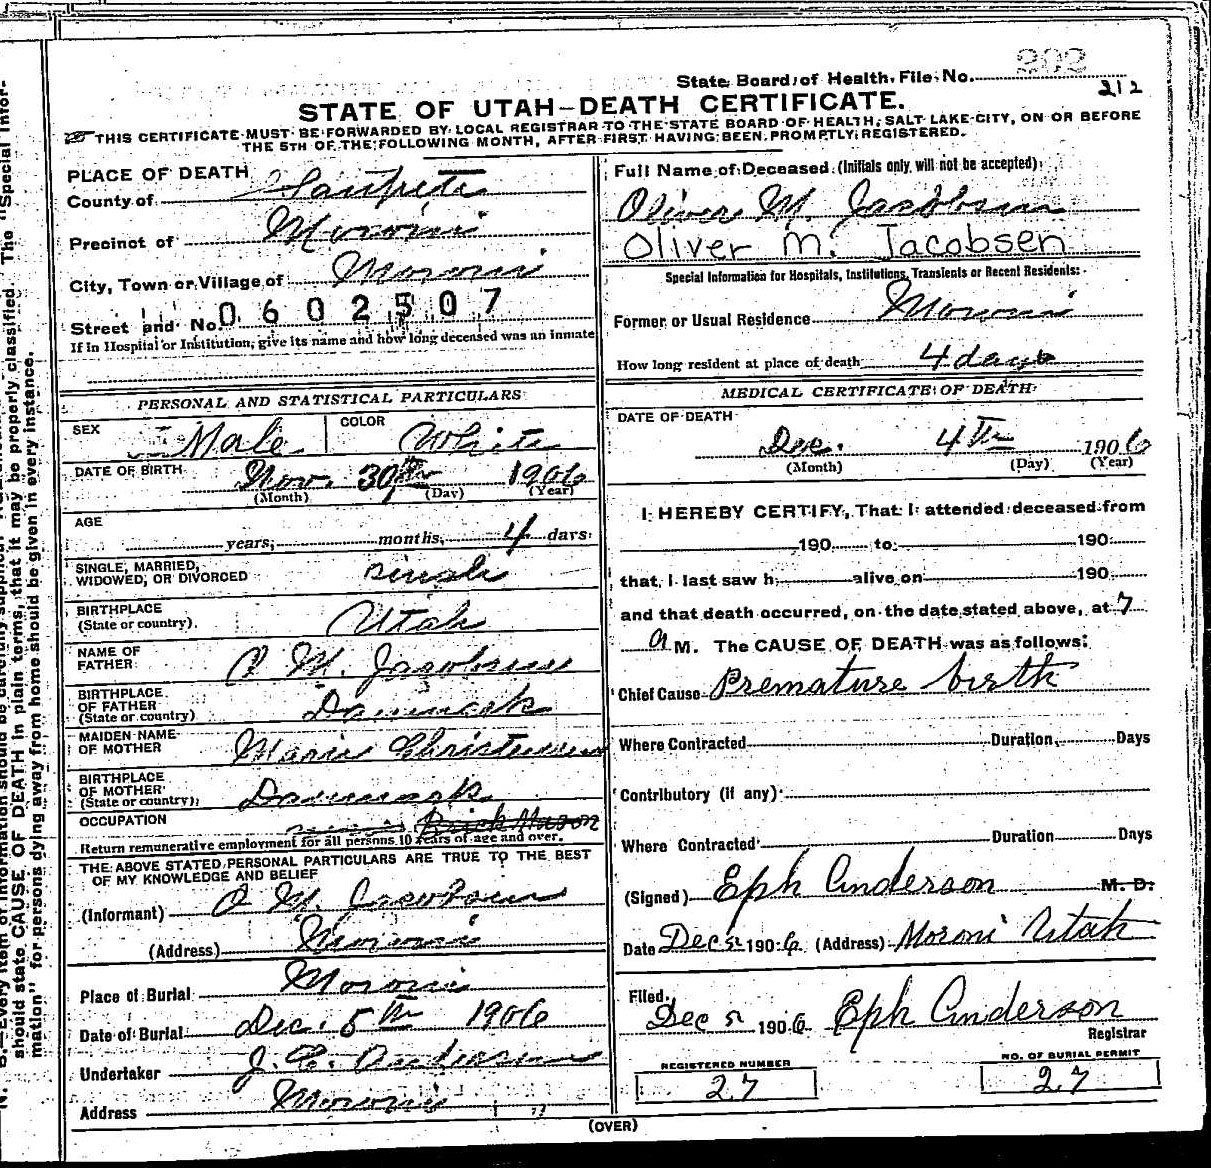 State Board of Health, File No. 202
212
STATE OF UTAH—DEATH CERTIFICATE.
THIS CERTIFICATE MUST BE FORWARDED BY LOCAL REGISTRAR TO THE STATE BOARD OF HEALTH, SALT LAKE CITY, ON OR BEFORE
THE 5TH OF THE FOLLOWING MONTH, AFTER FIRST HAVING BEEN PROMPTLY REGISTERED.
PLACE OF DEATH
County of Sanpete
Precinct of Moroni
City, Town or Village of Moroni
Street and No. 0602507
If in Hospital or Institution, give its name and how long deceased was an inmate
PERSONAL AND STATISTICAL PARTICULARS
SEX Male COLOR White
DATE OF BIRTH Nov. 30th 1906
(Month) (Day) (Year)
AGE
years, months, 4 days
SINGLE, MARRIED,
WIDOWED, OR DIVORCED single
BIRTHPLACE
(State or country) Utah
NAME OF
FATHER O M. Jacobsen
BIRTHPLACE
OF FATHER
(State or country) Danmark
MAIDEN NAME
OF MOTHER Marie Christensen
BIRTHPLACE
OF MOTHER
(State or country) Danmark
OCCUPATION Brick Mason
Return remunerative employment for all persons 10 years of age and over.
THE ABOVE STATED PERSONAL PARTICULARS ARE TRUE TO THE BEST
OF MY KNOWLEDGE AND BELIEF
(Informant) O M. Jacobsen
(Address) Moroni
Place of Burial Moroni
Date of Burial Dec. 5th 1906
Undertaker J. C. Anderson
Address Moroni
Full Name of Deceased (Initials only will not be accepted)
Oliver M. Jacobsen
Oliver M. Jacobsen
Special Information for Hospitals, Institutions, Transients or Recent Residents:
Former or Usual Residence Moroni
How long resident at place of death 4 days
MEDICAL CERTIFICATE OF DEATH
DATE OF DEATH
Dec. 4th 1906
(Month) (Day) (Year)
I HEREBY CERTIFY, That I attended deceased from
190 to 190
that I last saw h alive on 190
and that death occurred, on the date stated above, at 7
a M. The CAUSE OF DEATH was as follows:
Chief Cause Premature birth
Where Contracted Duration Days
Contributory (if any)
Where Contracted Duration Days
(Signed) Eph Anderson M. D.
Date Dec 5 1906 (Address) Moroni Utah
Filed
Dec 5 1906 Eph Anderson
Registrar
REGISTERED NUMBER
27
NO. OF BURIAL PERMIT
27
(OVER)
should state CAUSE OF DEATH in plain terms, that it may be properly classified. The "Special Infor-
mation" for persons dying away from home should be given in every instance.